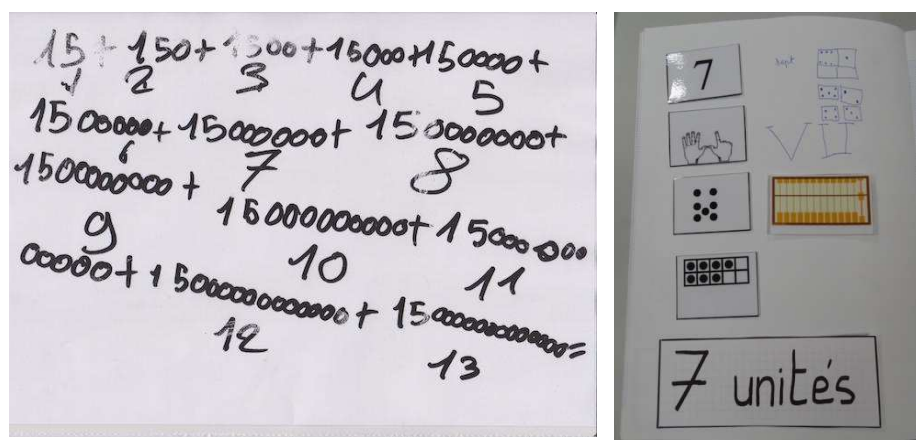 15+150+1500+15000+150000+
1 2 3 4 5
1500000+15000000+150000000+
6 7 8
1500000000+
9
15000000000+15000000
10 11
00000+1500000000000+15000000000000=
12 13
7
sept
VII
7 unités